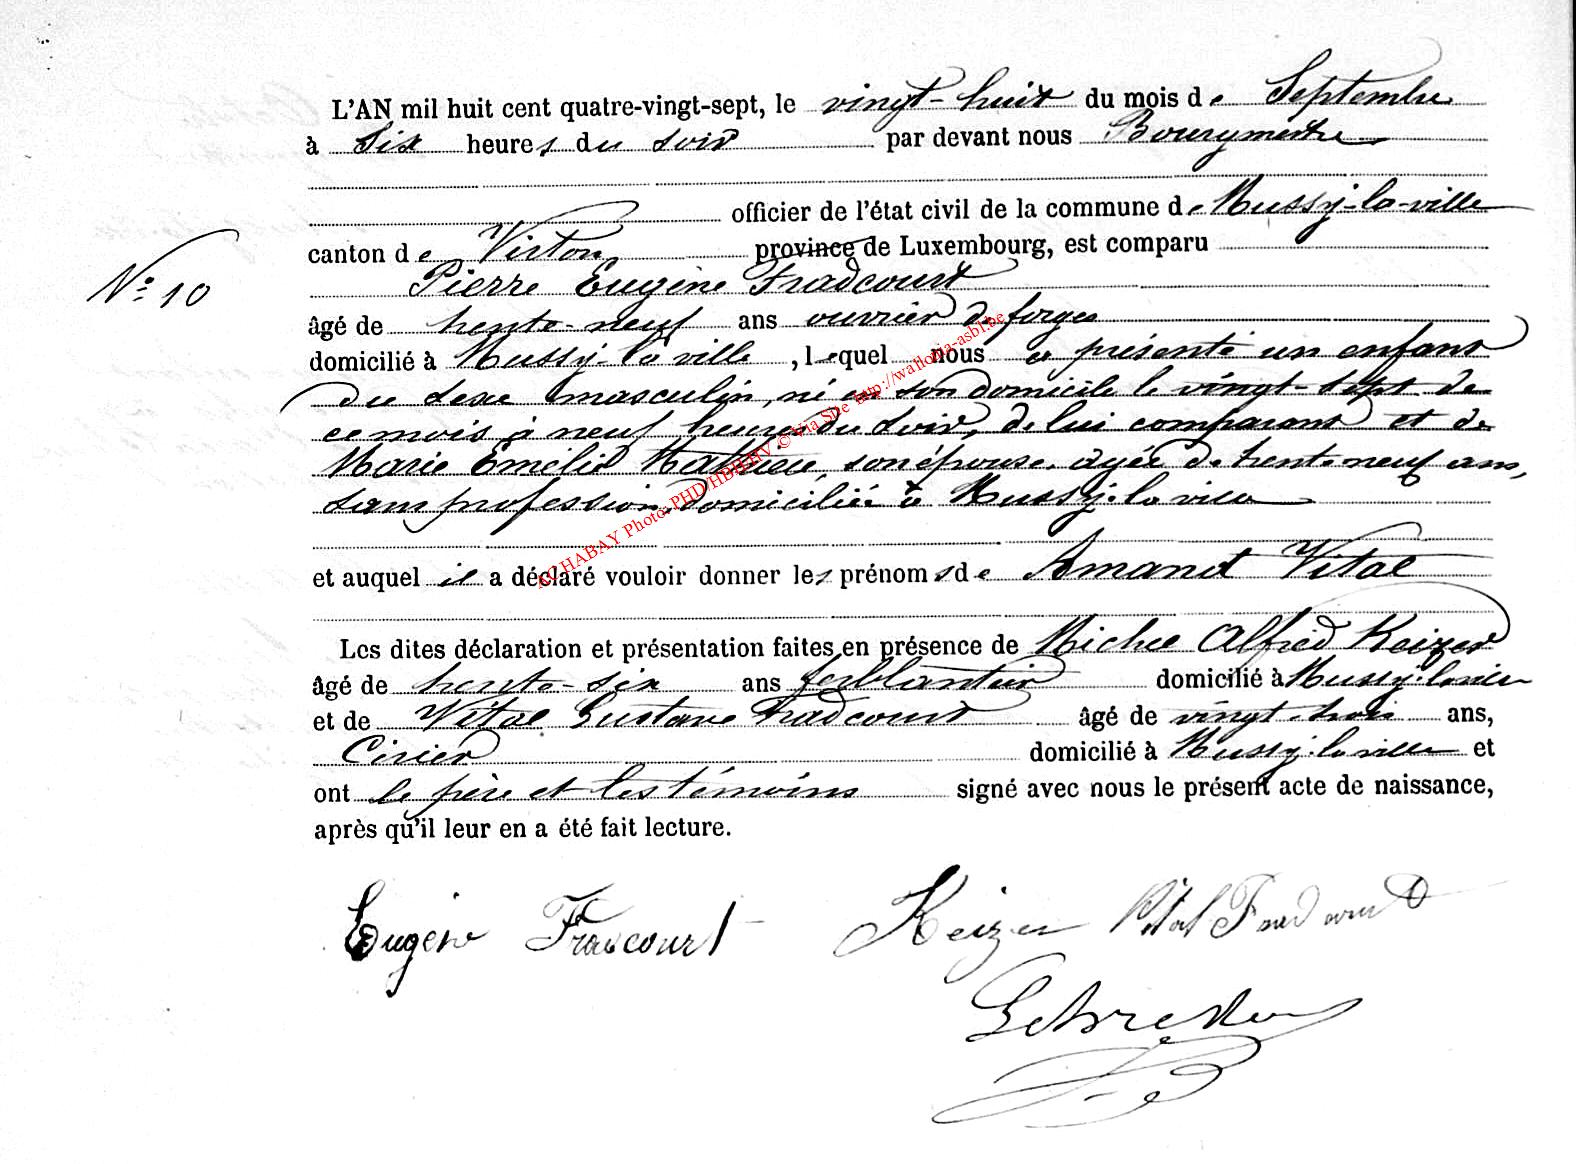 L'AN mil huit cent quatre-vingt-sept, le vingt-huit du mois de Septembre
à Six heures du soir par devant nous Bourgmestre
officier de l'état civil de la commune de Mussy-la-ville
canton de Virton province de Luxembourg, est comparu
N° 10
Pierre Eugène Fradcourt
âgé de trente-neuf ans ouvrier de forges
domicilié à Mussy-la ville, lequel nous a présenté un enfant
du sexe masculin, né en son domicile le vingt-sept de
ce mois à neuf heures du soir, de lui comparant et de
Marie Emélie son épouse, agée de trente neuf ans,
sans profession domiciliée à Mussy-la ville
et auquel il a déclaré vouloir donner les prénoms de Amand Vital
Les dites déclaration et présentation faites en présence de Michel Alfred Keizer
âgé de trente-six ans ferblantier domicilié à Mussy-la ville
et de Vital Gustave Fradcourt âgé de vingt-trois ans,
Cirier domicilié à Mussy-la ville et
ont le père et les témoins signé avec nous le présent acte de naissance,
après qu'il leur en a été fait lecture.
Eugène Fradcourt Keizer Vital Fradcourt
ACHABAY Photo-PHD/HBH/HV © Via Site http://wallonia-asbl.be